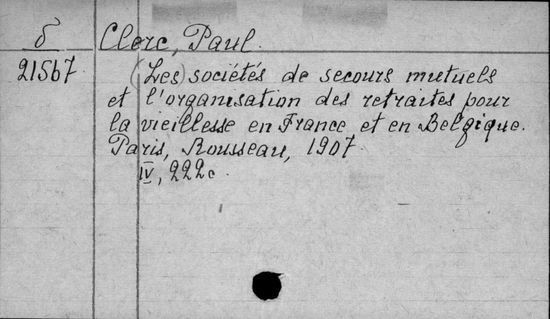 б
21567
Clerc, Paul.
(Les) sociétés de secours mutuels
et l'organisation des retraites pour
la vieillesse en France et en Belgique.
Paris, Rousseau, 1907.
IV, 222 с.